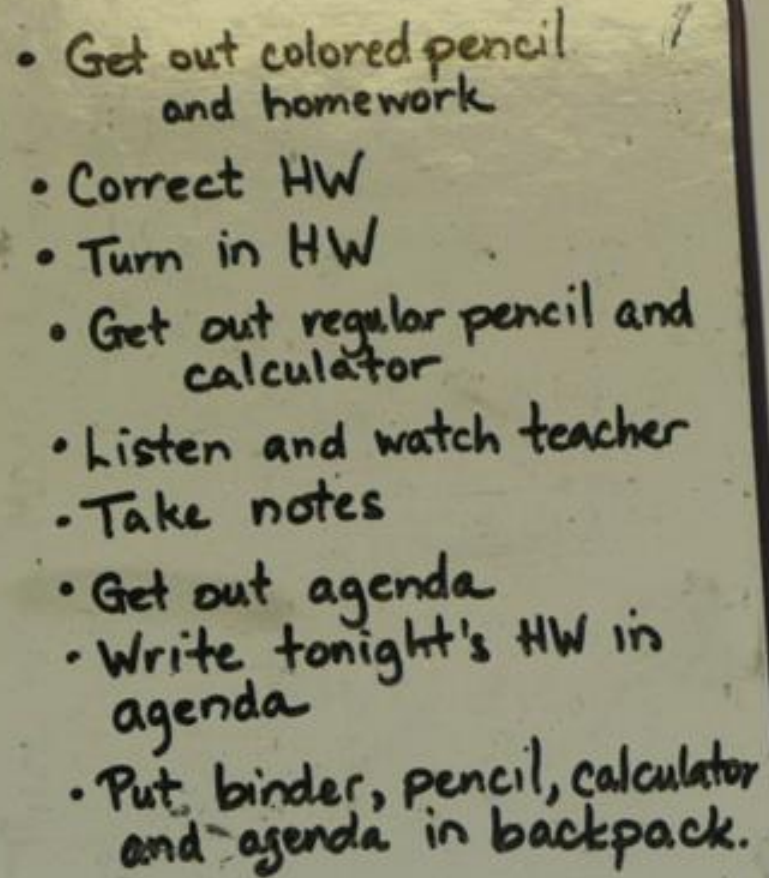 • Get out colored pencil
and homework
• Correct HW
• Turn in HW
• Get out regular pencil and
calculator
• Listen and watch teacher
• Take notes
• Get out agenda
• Write tonight's HW in
agenda
• Put binder, pencil, calculator
and agenda in backpack.